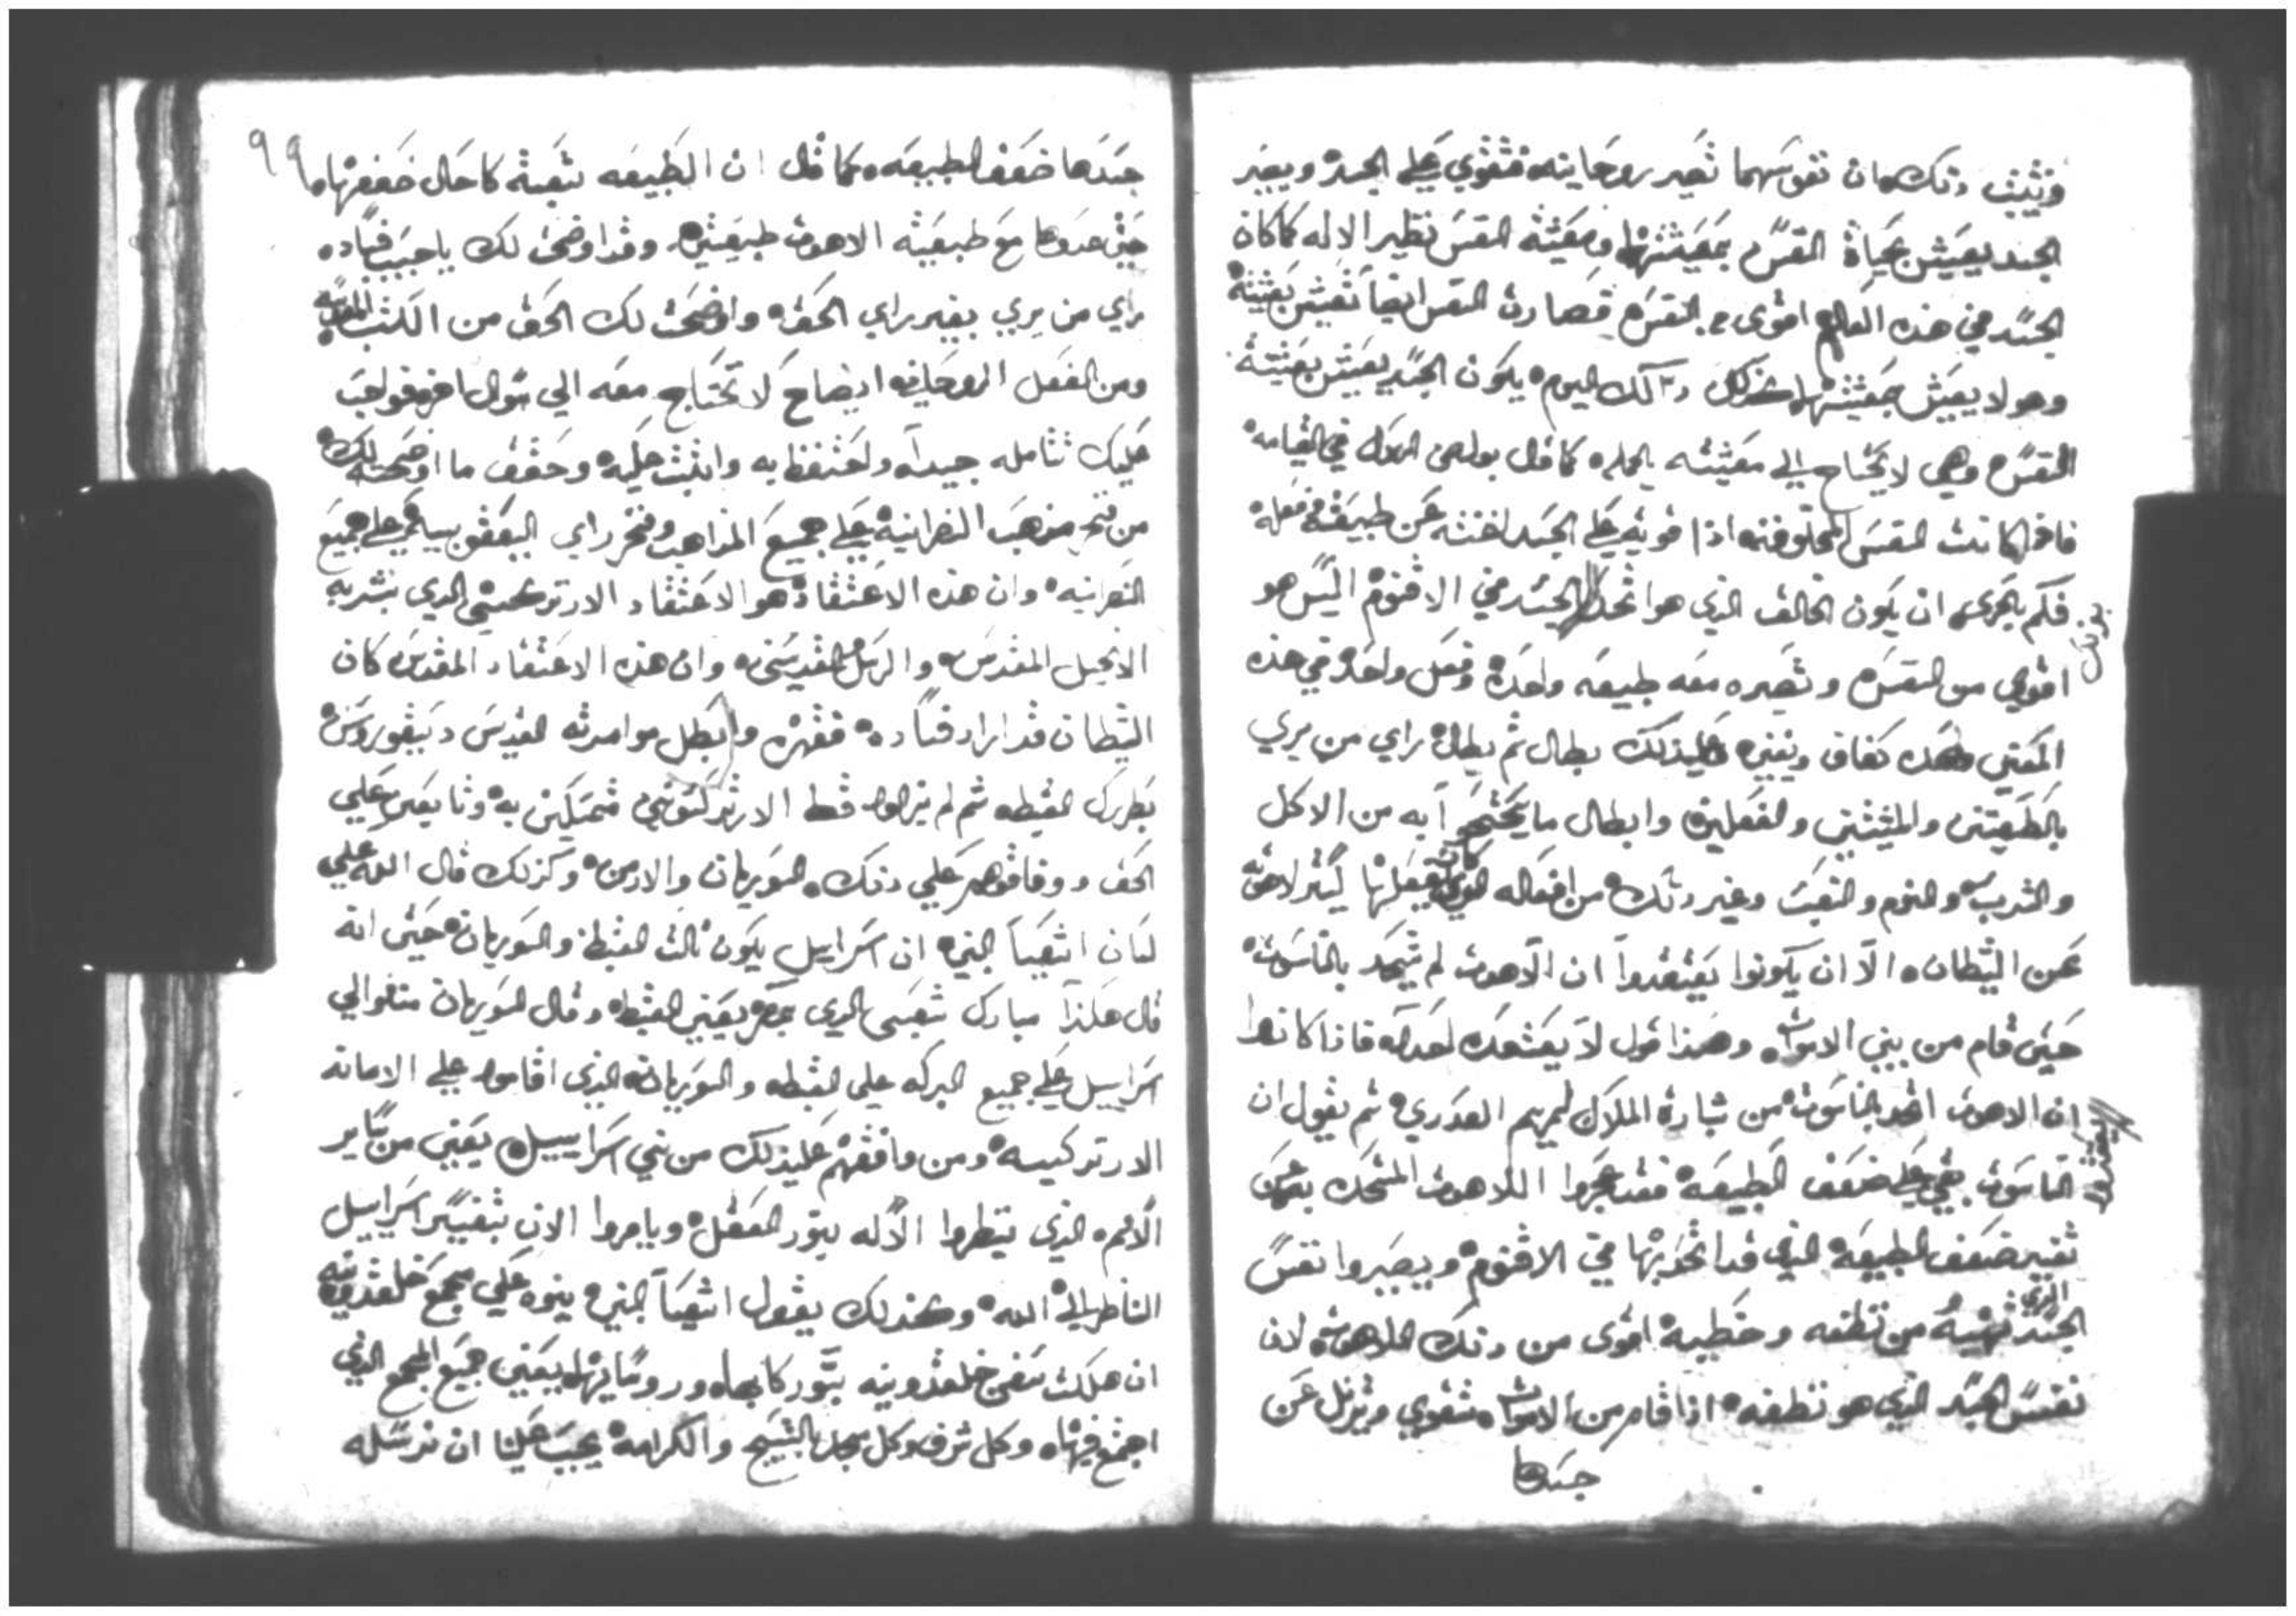 ونثبت ذلك ان نفوسهما تصير روحانيه فتقوي علي الجسد ويصير
الجسد يعيش بحياة النفس بمعيشتها ومعيشة النفس نظير الاله كما كان
الجسد في هذه العالم اقوي من النفس فصارت النفس ايضا تعيش بعيشته
وهو لا يعيش بمعيشتها كذلك ذلك اليوم يكون الجسد يعيش بعيشة
النفس وهي لا تحتاج الي معيشته بالجمله كما قال بولص الرسول في القيامه
فاذا كانت النفس المخلوقه اذا قويه علي الجسد اخذته عن طبيعته وفعله
فكم بالحري ان يكون الخالق الذي هو اتحد بالجسد في الاقنوم اليس هو
اقوي من النفس وتصيره معه طبيعه واحده وفعل واحد في هذه
المعني وحده كفاف ونبيه علي ذلك بطال ثم بطال راي من يري
بالطبيعتين والمشيتين والفعلين وابطال ما يحتجوا به من الاكل
والشرب والنوم والتعب وغير ذلك من افعاله الذي كان يفعلها ليستر لاهوته
عن الشيطان الا ان يكونوا يعتقدوا ان اللاهوت لم يتحد بالناسوت
حتي قام من بين الاموات وهذا قول لا يعتقده احد فاذا كانوا
يعتقدوا
ان اللاهوت اتحد بالناسوت من بشارة الملاك لمريم العدري ثم نقول ان
الناسوت بقي علي ضعف الطبيعه فقد عجزوا اللاهوت المتحد به عن
تغيير ضعف الطبيعه الذي قد اتحد بها في الاقنوم ويصيروا نفس
الجسد الذي من نطفه وخطيه اقوي من ذلك اللاهوت لان
نفس الجسد الذي هو نطفه اذا قام من الاموات تقوي وتزيل عن
جسدها
٩٩
جسدها ضعف الطبيعه كما قال ان الطبيعه بقية كاحال ضعفها
حتي عدوها مع طبيعة اللاهوت طبيعتين وقد اوضحت لك يا حبيب فساد
راي من يري بغير راي الحق واوضحت لك الحق من الكتب المقدسه
ومن الفعل الروحانيه ايضاح لا تحتاج معه الي سوال اخر فواجب
عليك تتامله جيدا واحتفظ به واثبت عليه وحقق ما اوضحته لك
من فتح مذهب النصرانيه علي جميع المذاهب وفخر راي اليعقوبيه علي جميع
النصرانيه وان هذه الاعتقاد هو الاعتقاد الارتدكسي الذي بشر به
الانجيل المقدس والرسل القديسين وان هذه الاعتقاد المقدس كان
الشيطان قد اراد فساده فقهره وابطل موامرته القديس ديسقوروس
بطريرك القبطه ثم لم يزالوا قبط الارتدكسين متمسكين به وتابعين علي
الحق ووافقوهم علي ذلك السوريان والارمن وكذلك قال الله علي
لسان اشعيا النبي ان اسراييل يكون ثالث القبط والسوريان حتي انه
قال هكذا مبارك شعبي الذي بمصر يعني القبطه وقال السوريان
اسراييل علي جميع البركه علي القبطه والسوريان الذي اقاموا علي الامانه
الارتدكسيه ومن وافقهم علي ذلك من بني اسراييل يعني من ساير
الامم الذي ينظروا الاله بنور العقل ويامروا الان بتفسير اسراييل
الناظر الي الله وكذلك يقول اشعيا النبي ينوه علي مجمع خلقدونيه
ان هلكت سفن خلقدونيه بنور كابها ورؤسايها يعني جميع المجمع الذي
اجتمع فيها وكل شرف وكل مجد بالتسبيح والكرامه يجب علينا ان نرسله